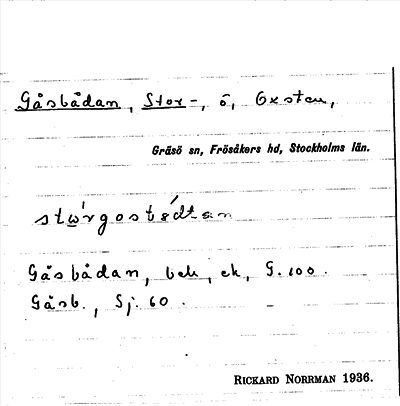 Gåsbådan, Stor-, ö, Gxsten,
Gräsö sn, Frösåkers hd, Stockholms län.
Gåsbådan, bek, ek, G. 100.
Gåsb., Sj. 60.
RICKARD NORRMAN 1936.